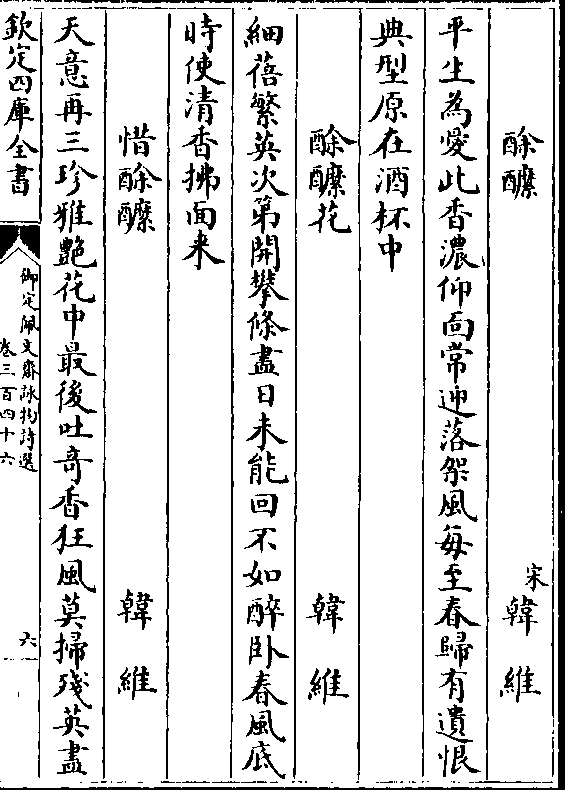 酴醿　宋韓維
平生為愛此香濃仰面常迎落架風每至春歸有遺恨
典型原在酒杯中
酴醿花　韓維
細蓓繁英次第開攀條盡日未能回不如醉卧春風底
時使清香拂面来
惜酴醿　韓維
天意再三珍雅艶花中最後吐奇香狂風莫掃殘英盡
欽定四庫全書
御定佩文齋詠物詩選
卷三百四十六
六